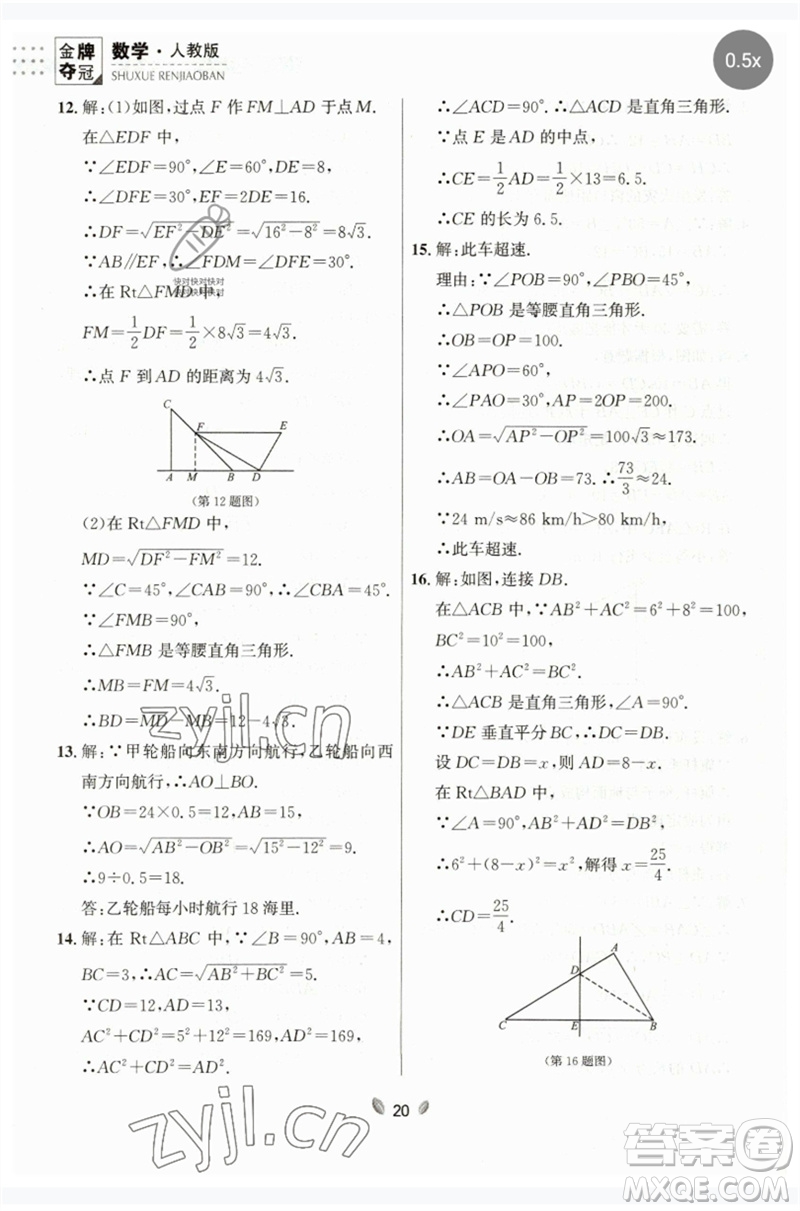 金牌
夺冠
数学·人教版
SHUXUE RENJIAOBAN
0.5x
12. 解:(1)如图,过点 F 作 FM⊥AD 于点 M.
在△EDF 中,
∵∠EDF=90°,∠E=60°,DE=8,
∴∠DFE=30°,EF=2DE=16.
∴DF=√(EF²-DE²)=√(16²-8²)=8√3.
∵AB∥EF,∴∠FDM=∠DFE=30°.
∴在 Rt△FMD 中,
FM=1/2DF=1/2×8√3=4√3.
∴点 F 到 AD 的距离为 4√3.
C
F
E
A
M
B
D
(第 12 题图)
(2)在 Rt△FMD 中,
MD=√(DF²-FM²)=12.
∵∠C=45°,∠CAB=90°,∴∠CBA=45°.
∵∠FMB=90°,
∴△FMB 是等腰直角三角形.
∴MB=FM=4√3.
∴BD=MD-MB=12-4√3.
13. 解:∵甲轮船向东南方向航行,乙轮船向西
南方向航行,∴AO⊥BO.
∵OB=24×0.5=12,AB=15,
∴AO=√(AB²-OB²)=√(15²-12²)=9.
∴9÷0.5=18.
答:乙轮船每小时航行 18 海里.
14. 解:在 Rt△ABC 中,∵∠B=90°,AB=4,
BC=3,∴AC=√(AB²+BC²)=5.
∵CD=12,AD=13,
AC²+CD²=5²+12²=169,AD²=169,
∴AC²+CD²=AD².
∴∠ACD=90°.∴△ACD 是直角三角形.
∵点 E 是 AD 的中点,
∴CE=1/2AD=1/2×13=6.5.
∴CE 的长为 6.5.
15. 解:此车超速.
理由:∵∠POB=90°,∠PBO=45°,
∴△POB 是等腰直角三角形.
∴OB=OP=100.
∵∠APO=60°,
∴∠PAO=30°,AP=2OP=200.
∴OA=√(AP²-OP²)=100√3≈173.
∴AB=OA-OB=73.∴73/3≈24.
∵24 m/s≈86 km/h>80 km/h,
∴此车超速.
16. 解:如图,连接 DB.
在△ACB 中,∵AB²+AC²=6²+8²=100,
BC²=10²=100,
∴AB²+AC²=BC².
∴△ABC 是直角三角形,∠A=90°.
∵DE 垂直平分 BC,∴DC=DB.
设 DC=DB=x,则 AD=8-x.
在 Rt△BAD 中,
∵∠A=90°,∴AB²+AD²=DB²,
∴6²+(8-x)²=x²,解得 x=25/4.
∴CD=25/4.
A
D
C
E
B
(第 16 题图)
20
快对快对快对
快对快对快对
zyjl.cn
zyjl.cn
答案卷
MXQE.COM